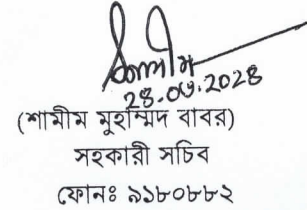 ২৪.০৩.২০২৪
(শামীম মুহাম্মিদ বাবর)
সহকারী সচিব
ফোনঃ ৯১৮০৮৮২